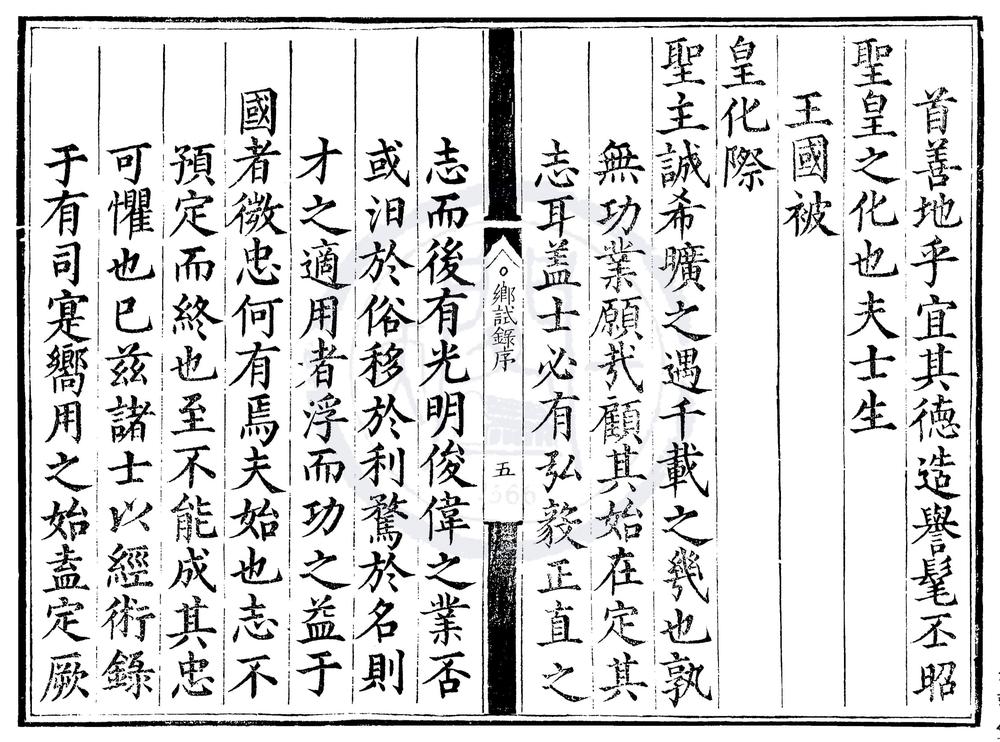 首善地乎宜其德造譽髦丕昭
聖皇之化也夫士生
王國被
皇化際
聖主誠希曠之遇千載之幾也孰
無功業願㢤顧其始在定其
志耳盖士必有弘毅正直之
鄉試錄序
五
志而後有光明俊偉之業否
或汨於俗移於利騖於名則
才之適用者浮而功之益于
國者微忠何有焉夫始也志不
預定而終也至不能成其忠
可懼也已兹諸士以經術錄
于有司寔嚮用之始盍定厥